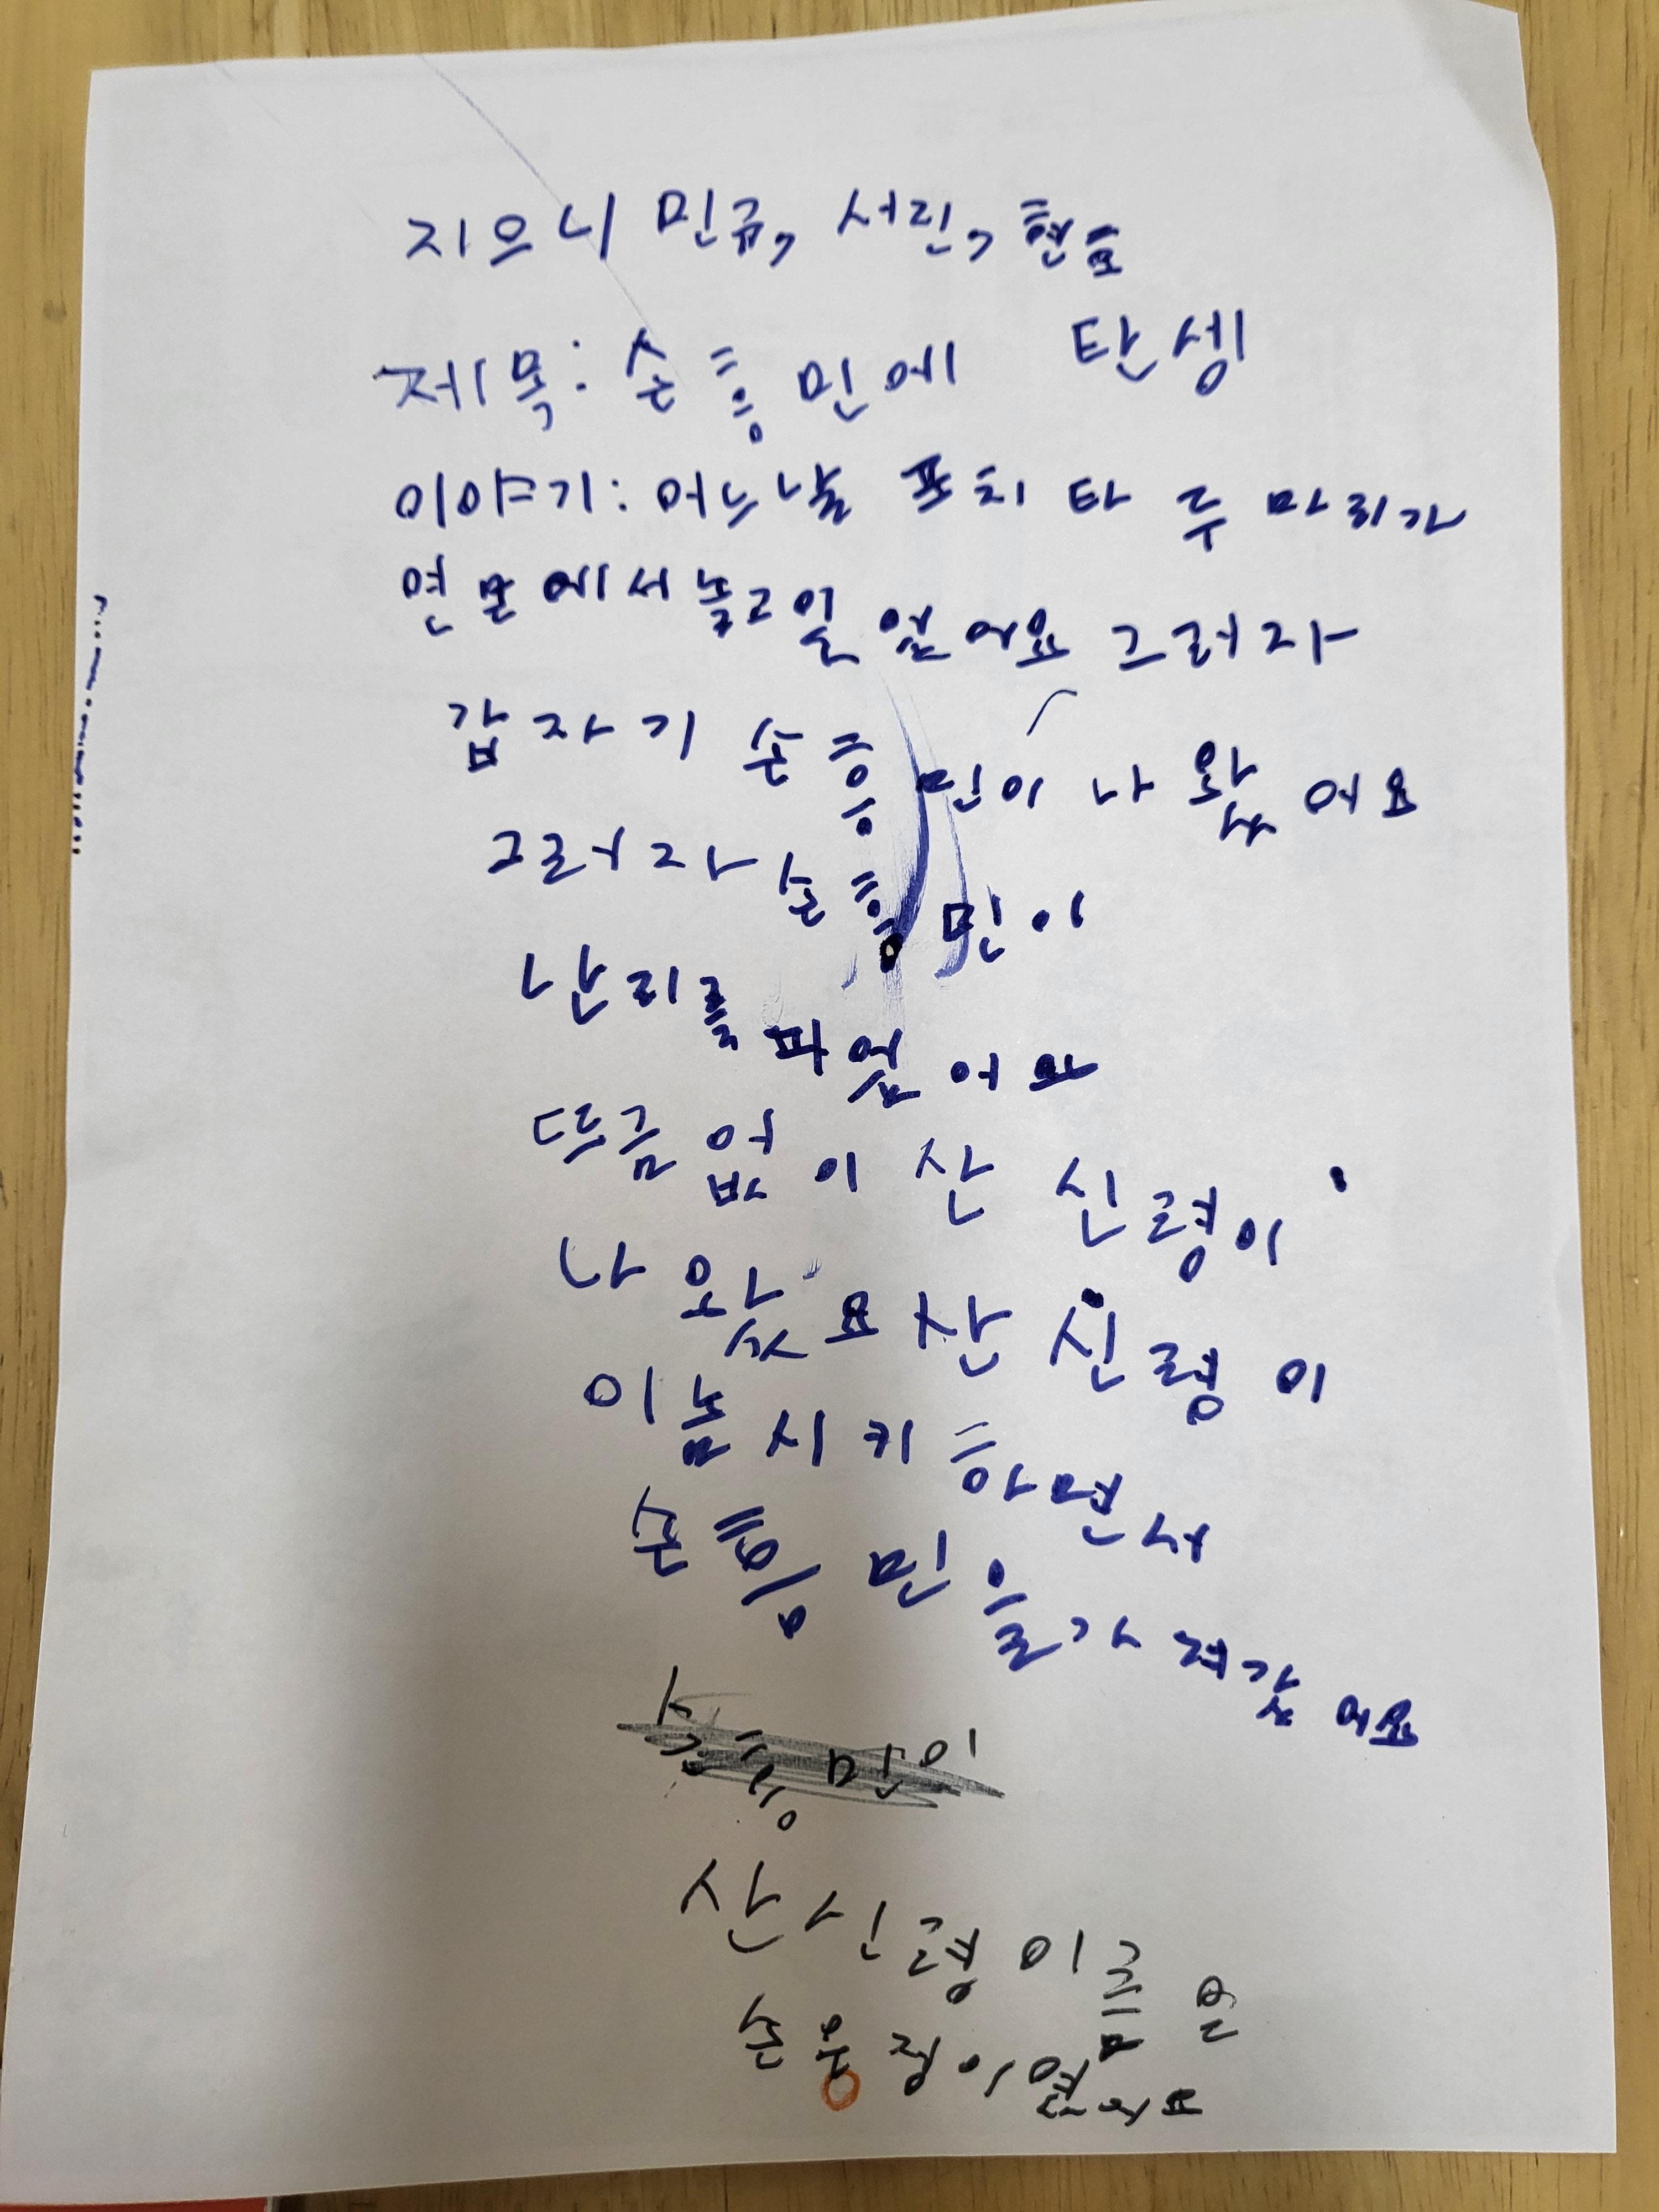 지으니 민규, 서린, 현효
제목: 손흥민에 탄생
이야기: 어느날 포치타 두마리가
연못에서 놀고 있 었어요 그러자
갑자기 손흥민이 나왔어요
그러자 손흥민이
난리를 피 었어요
뜨금없이 산 신령이
나왔요 산 신령이
이놈시키 하면서
손흥민을 가져갔어요
손흥민이
산신령 이름은
손웅정이였어요